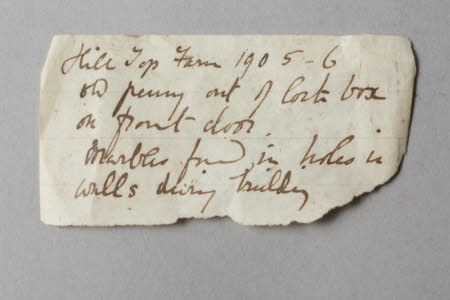 Hill Top Farm 1905-6
old penny out of lock box
on front door.
Marbles found in holes in
walls during building